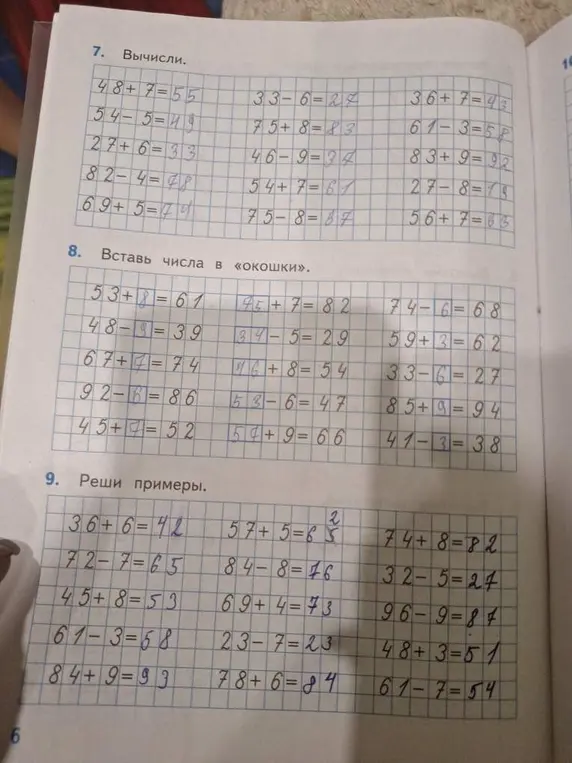 7. Вычисли.
48+7=55 33-6=27 36+7=43
54-5=49 75+8=83 61-3=58
27+6=33 46-9=37 83+9=92
82-4=78 54+7=61 27-8=19
69+5=74 75-8= 56+7=63
8. Вставь числа в «окошки».
53+8=61 75+7=82 74-6=68
48-9=39 34-5=29 59+3=62
67+7=74 46+8=54 33-6=27
92-6=86 53-6=47 85+9=94
45+7=52 57+9=66 41-3=38
9. Реши примеры.
2
36+6=42 57+5=65 74+8=82
72-7=65 84-8=76 32-5=27
45+8=53 69+4=73 96-9=87
61-3=58 23-7=23 48+3=51
84+9=93 78+6=84 61-7=54
6